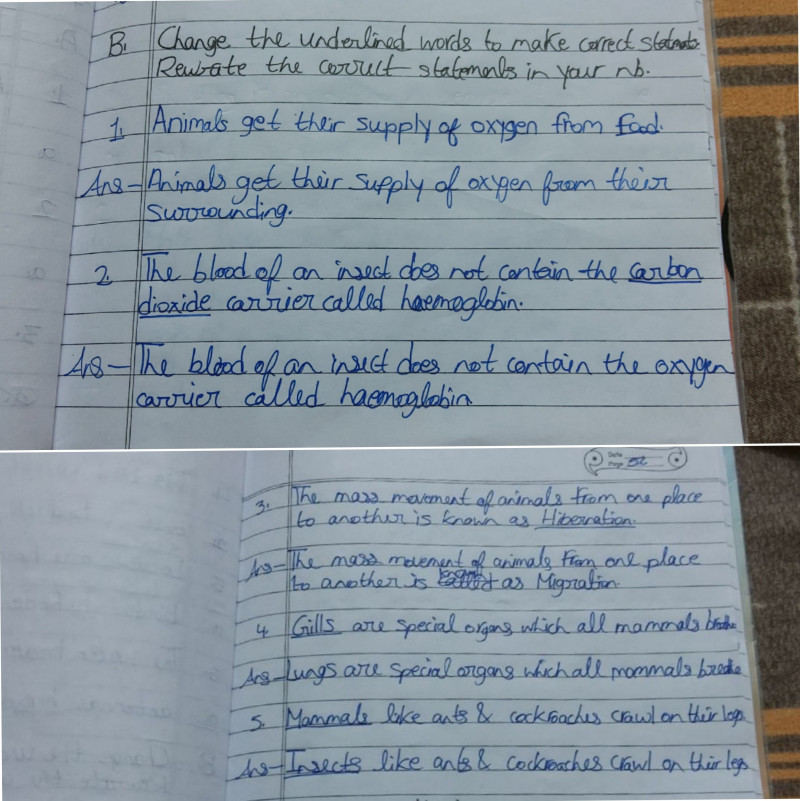 B. Change the underlined words to make correct statements.
Rewrate the correct statements in your nb.
1. Animals get their supply of oxygen from food.
Ans - Animals get their supply of oxygen from their
surrounding.
2. The blood of an insect does not contain the carbon
dioxide carrier called haemoglobin.
Ans - The blood of an insect does not contain the oxygen
carrier called haemoglobin
Date
Page 52
3. The mass movement of animals from one place
to another is known as Hibernation.
Ans - The mass movement of animals from one place
to another is as Migration.
4 Gills are special organs which all mammals breathe
Ans - Lungs are special organs which all mammals breathe
5. Mammals like ants & cockroaches crawl on their legs
Ans - Insects like ants & cockroaches crawl on their legs